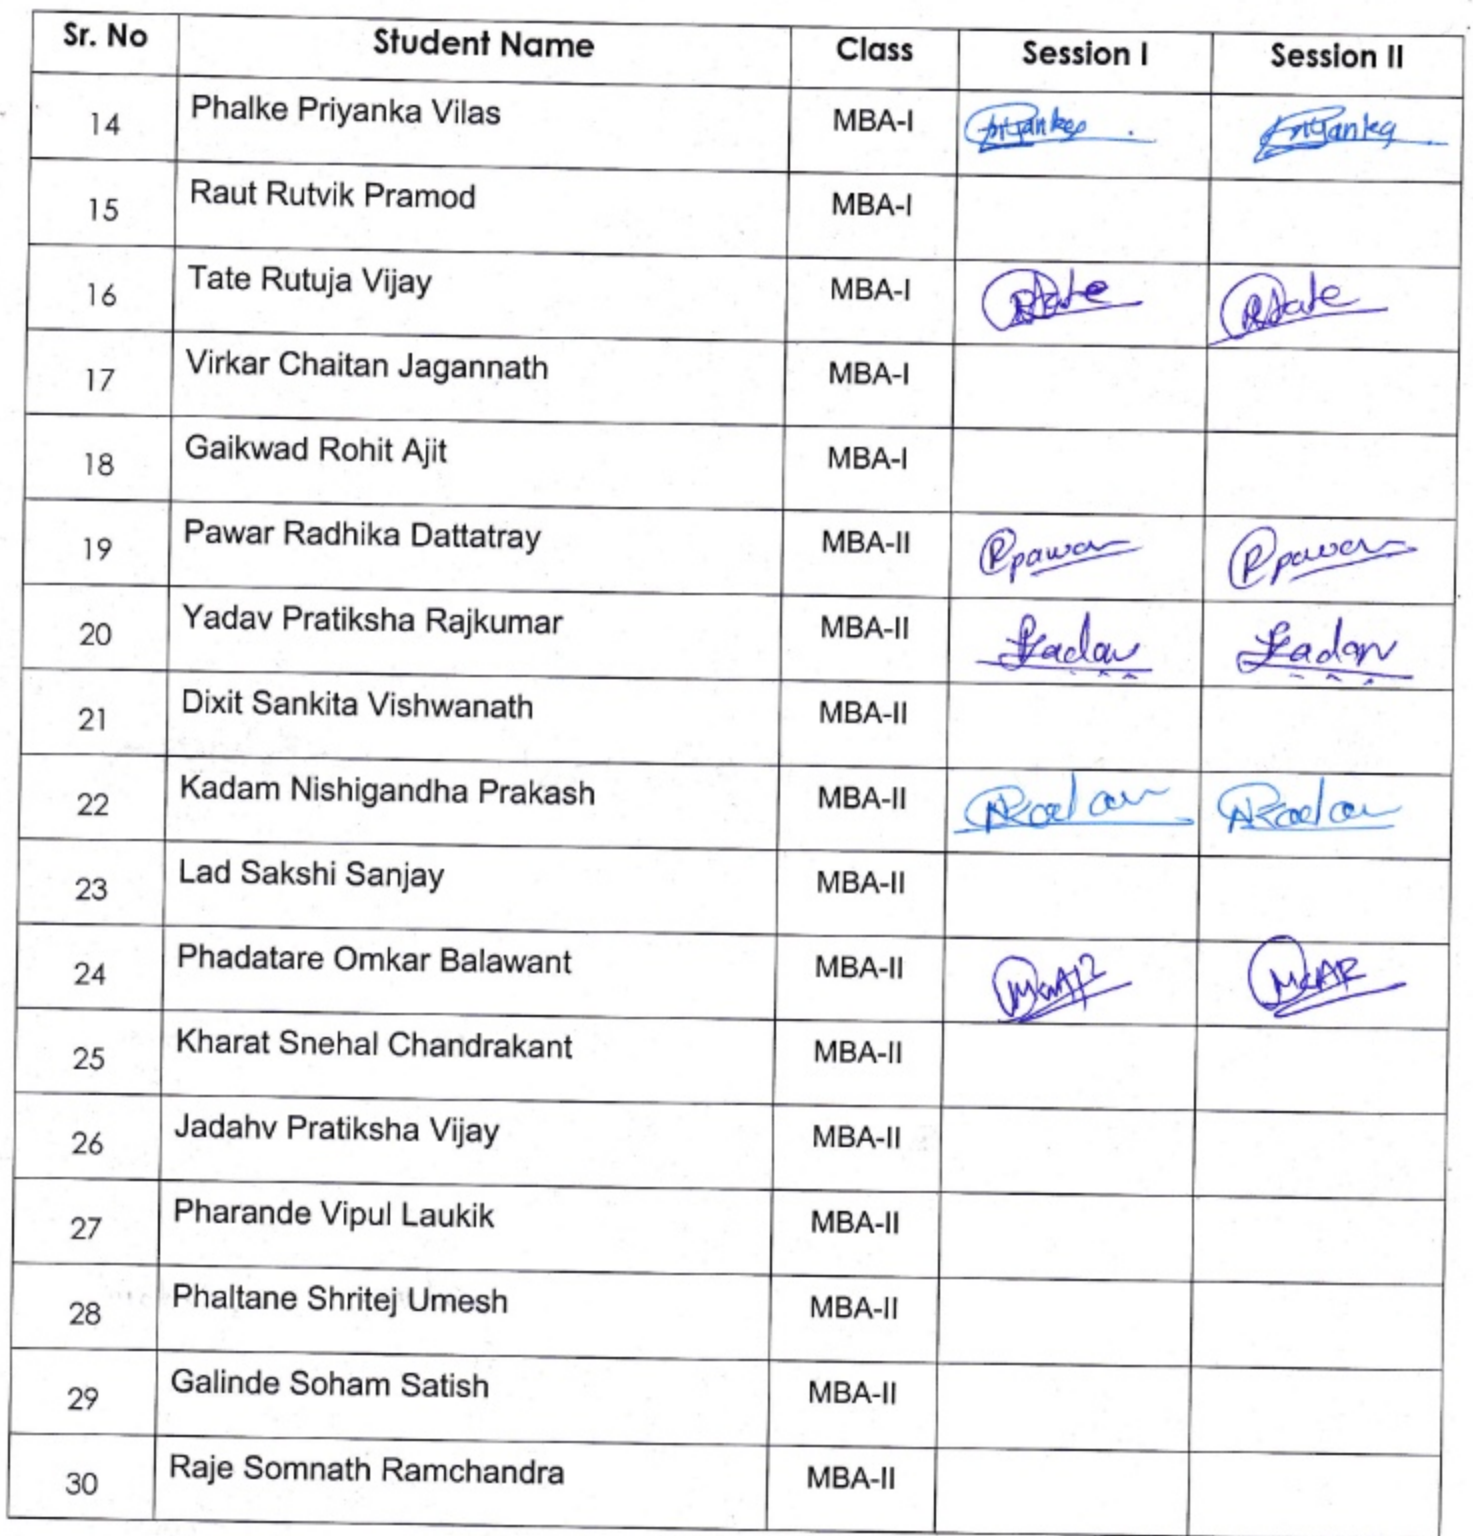 Sr. No Student Name Class Session I Session II
14 Phalke Priyanka Vilas MBA-I Priyanka Priyanka
15 Raut Rutvik Pramod MBA-I
16 Tate Rutuja Vijay MBA-I RTate RTate
17 Virkar Chaitan Jagannath MBA-I
18 Gaikwad Rohit Ajit MBA-I
19 Pawar Radhika Dattatray MBA-II Rpawar Rpawar
20 Yadav Pratiksha Rajkumar MBA-II Yadav Yadav
21 Dixit Sankita Vishwanath MBA-II
22 Kadam Nishigandha Prakash MBA-II
23 Lad Sakshi Sanjay MBA-II
24 Phadatare Omkar Balawant MBA-II
25 Kharat Snehal Chandrakant MBA-II
26 Jadahv Pratiksha Vijay MBA-II
27 Pharande Vipul Laukik MBA-II
28 Phaltane Shritej Umesh MBA-II
29 Galinde Soham Satish MBA-II
30 Raje Somnath Ramchandra MBA-II